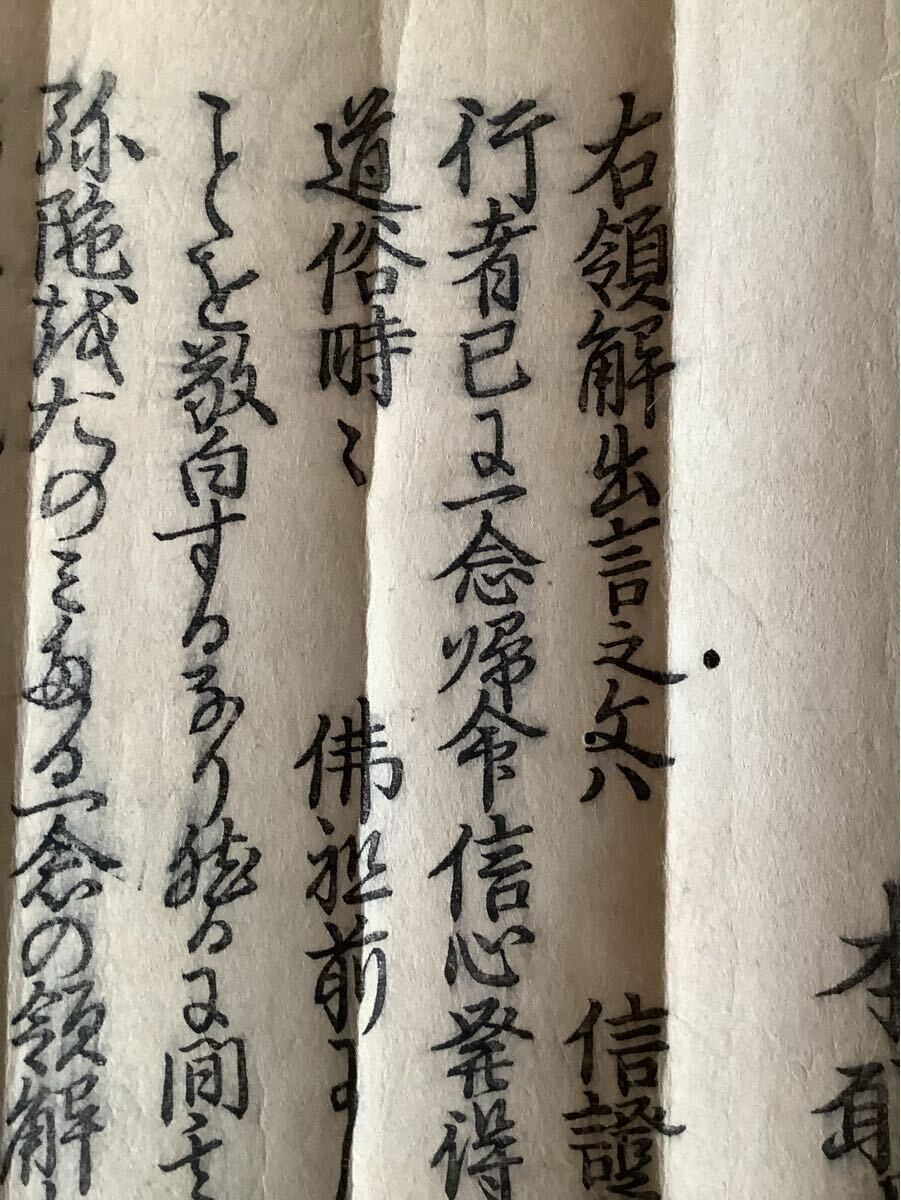 本
右領解出言之文ハ 信證
行者已に一念帰命信心発得
道俗時〻 佛祖前に
ことを敬白するなり然るに間
弥陀をたのミたる一念の領解